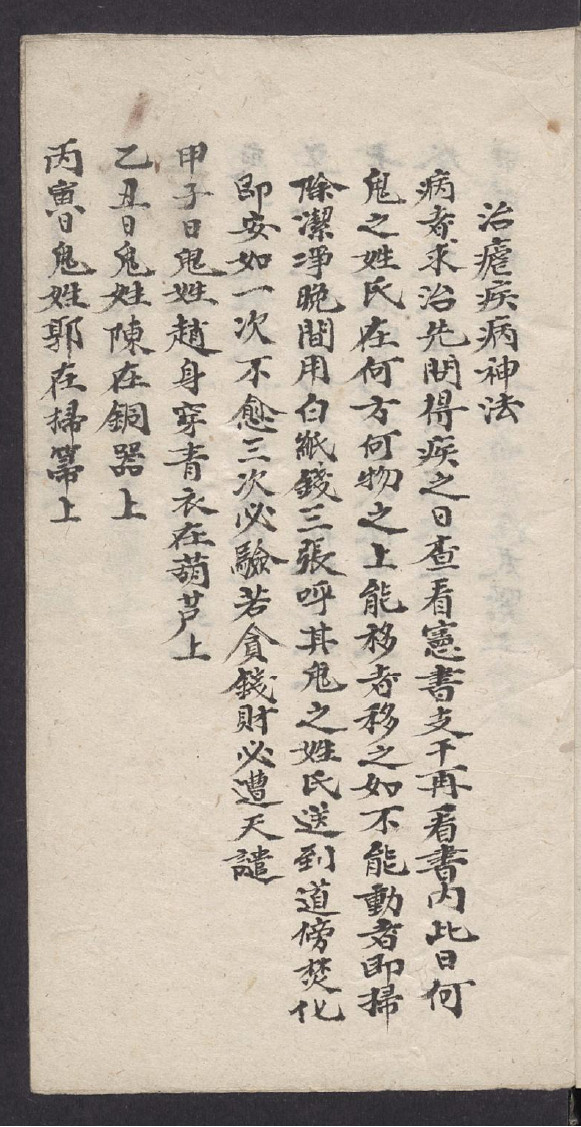 治瘧疾病神法
病者求治先問得疾之日查看憲書支干再看書內此日何
鬼之姓氏在何方何物之上能移者移之如不能動者即掃
除潔凈晚間用白紙錢三張呼其鬼之姓氏送到道傍焚化
即安如一次不愈三次必驗若貪錢財必遭天譴
甲子日鬼姓趙身穿青衣在葫芦上
乙丑日鬼姓陳在銅器上
丙寅日鬼姓郭在掃箒上